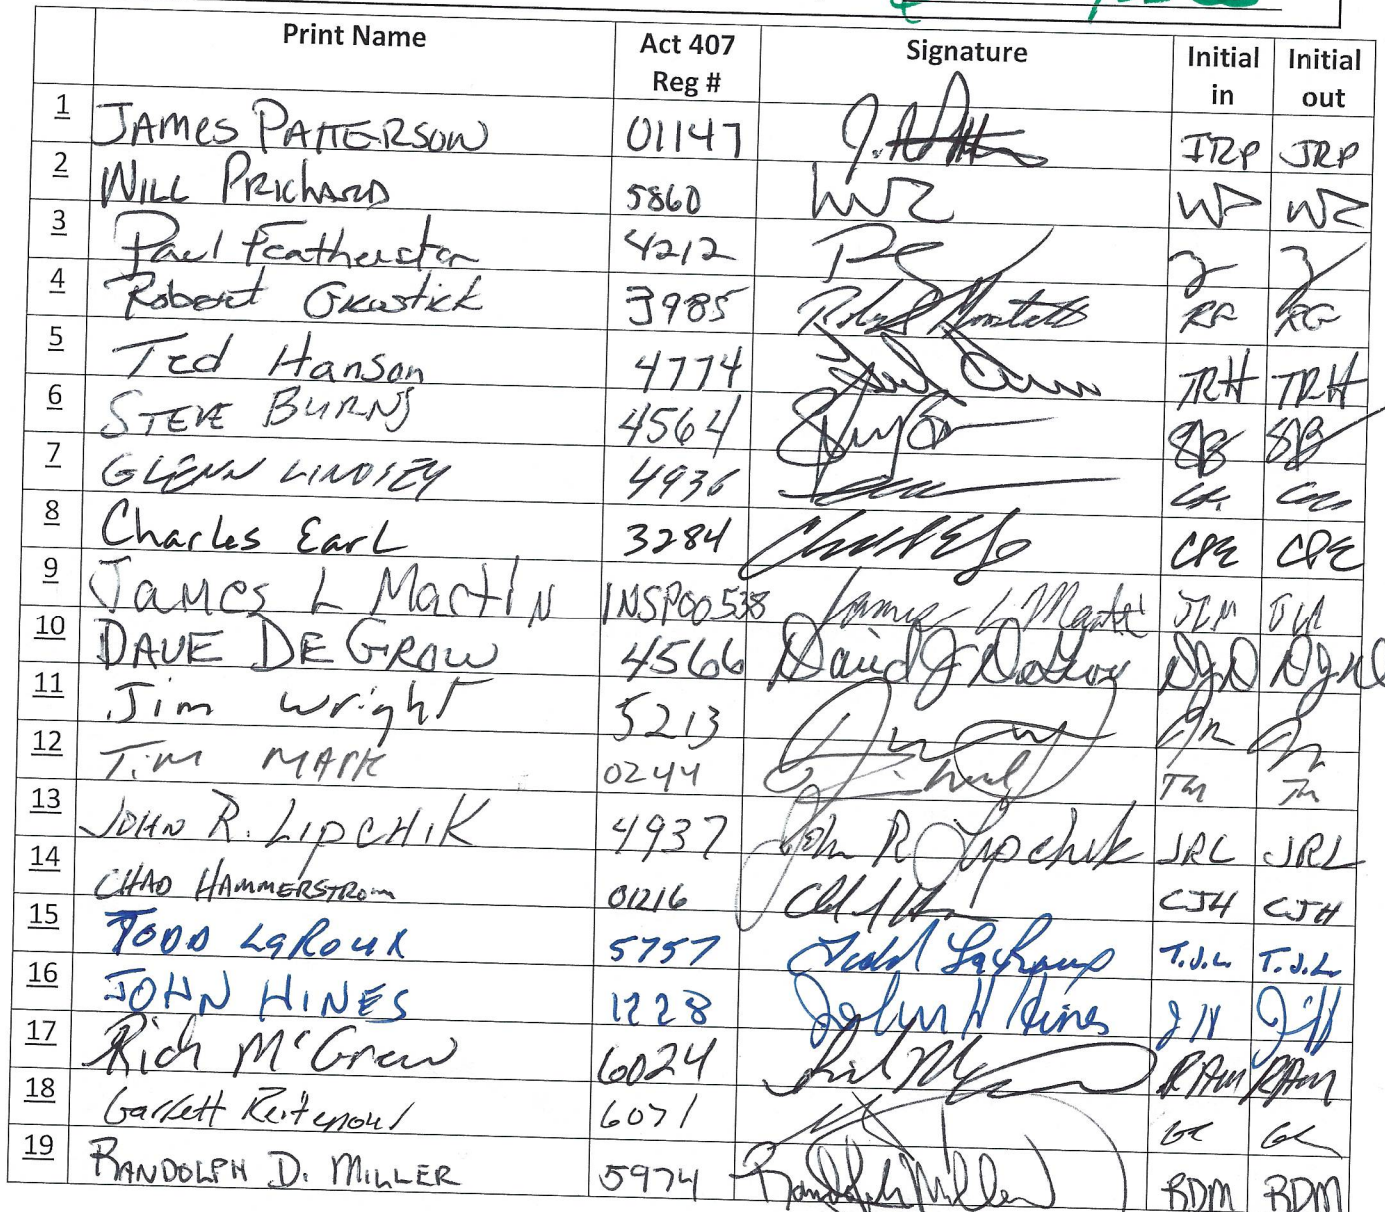 Print Name Act 407 Reg # Signature Initial in Initial out
1 JAMES PATTERSON 01147 JRP JRP
2 WILL PRICHARD 5860
3 Paul Featherston 4212
4 Robert 3985 RG RG
5 Ted Hanson 4774 TRH TRH
6 STEVE BURNS 4564 SB SB
7 GLENN LINDSEY 4936
8 Charles Earl 3284 CPE CPE
9 James L Martin INSP00538 James L Martin JLM JLM
10 DAVE DEGROW 4566 David J DeGrow DJD DJD
11 Jim Wright 5213
12 Tim MARK 0244 TM TM
13 JOHN R. LIPCHIK 4937 John R Lipchik JRL JRL
14 CHAD HAMMERSTROM 01216 CJH CJH
15 TODD LaROUX 5757 Todd T.J.L. T.J.L.
16 JOHN HINES 1228 John H Hines JH JH
17 Rich McGrew 6024 RAM RAM
18 Garrett 6071
19 RANDOLPH D. MILLER 5974 Randolph Miller RDM RDM